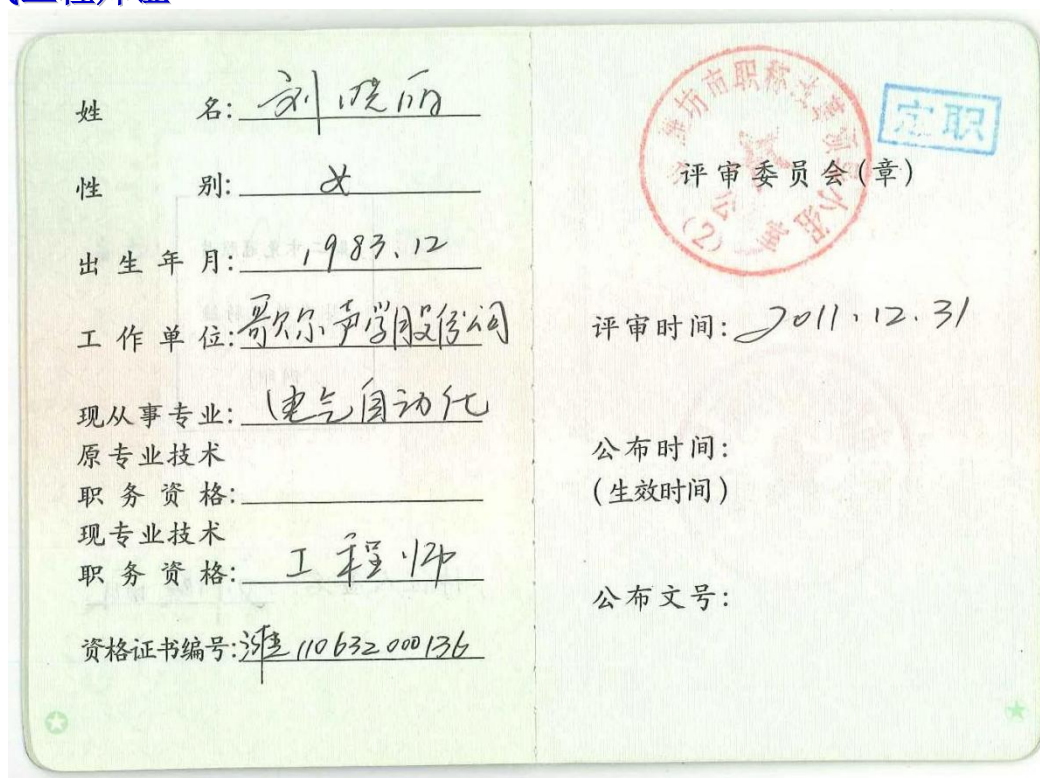 姓 名: 刘晓丽
性 别: 女
出生年月: 1983.12
工作单位: 歌尔声学股份公司
现从事专业: 电气自动化
原专业技术
职务资格:
现专业技术
职务资格: 工程师
资格证书编号: 潍110632000136
定职
评审委员会(章)
(2)
评审时间: 2011.12.31
公布时间:
(生效时间)
公布文号: